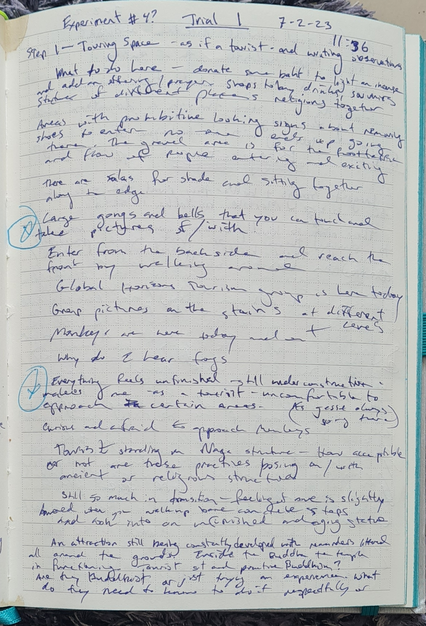 Experiment #4? Trial 1 7-2-23
11:36
Step 1 - Touring Space - as if a tourist - and writing observations
What to do here - donate some baht to light an incense
and add an offering / prayer - shops to buy drinks, souvenirs
of different religions together
Areas with prohibitive looking signs about removing
shoes to enter no one ends up going
there. The gravel area is for the
and flow of people entering and exiting
There are salas for shade and sitting together
along the edge
Large gongs and bells that you can touch and
take pictures of/with
Enter from the backside and reach the
front by walking around
Global Horizons Tourism group is here today
Group pictures on the stairs at different
levels
Monkeys are here today and
Why do I hear frogs
Everything feels unfinished - still under construction -
makes me - as a tourist - uncomfortable to
approach certain areas. (As Jesse always
Curious and afraid to approach monkeys
Tourist standing on Naga structure - How acceptable
or not are these practices posing on/with
ancient or religious structures
Still so much in transition - feeling of one is slightly
when you walking some concrete steps
and look into an unfinished and aging statue
An attraction still being constantly developed with
all around the grounds. Inside the Buddha the temple
is functioning tourist and practice Buddhism?
Are they Buddhist or just trying an experience. What
do they need to know to do it respectfully or